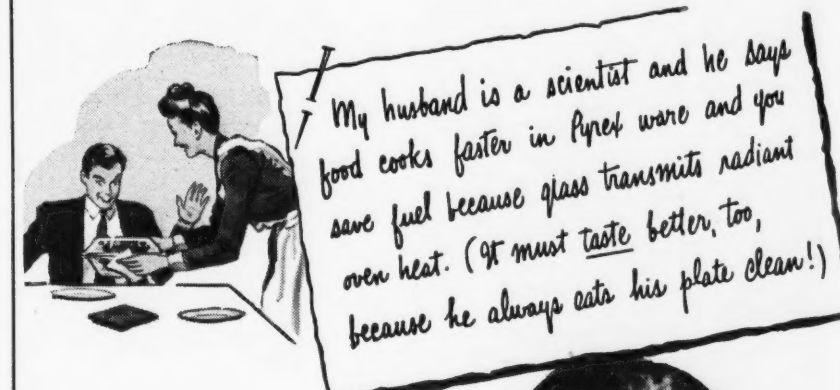 My husband is a scientist and he says
food cooks faster in Pyrex ware and you
save fuel because glass transmits radiant
oven heat. (It must taste better, too,
because he always eats his plate clean!)